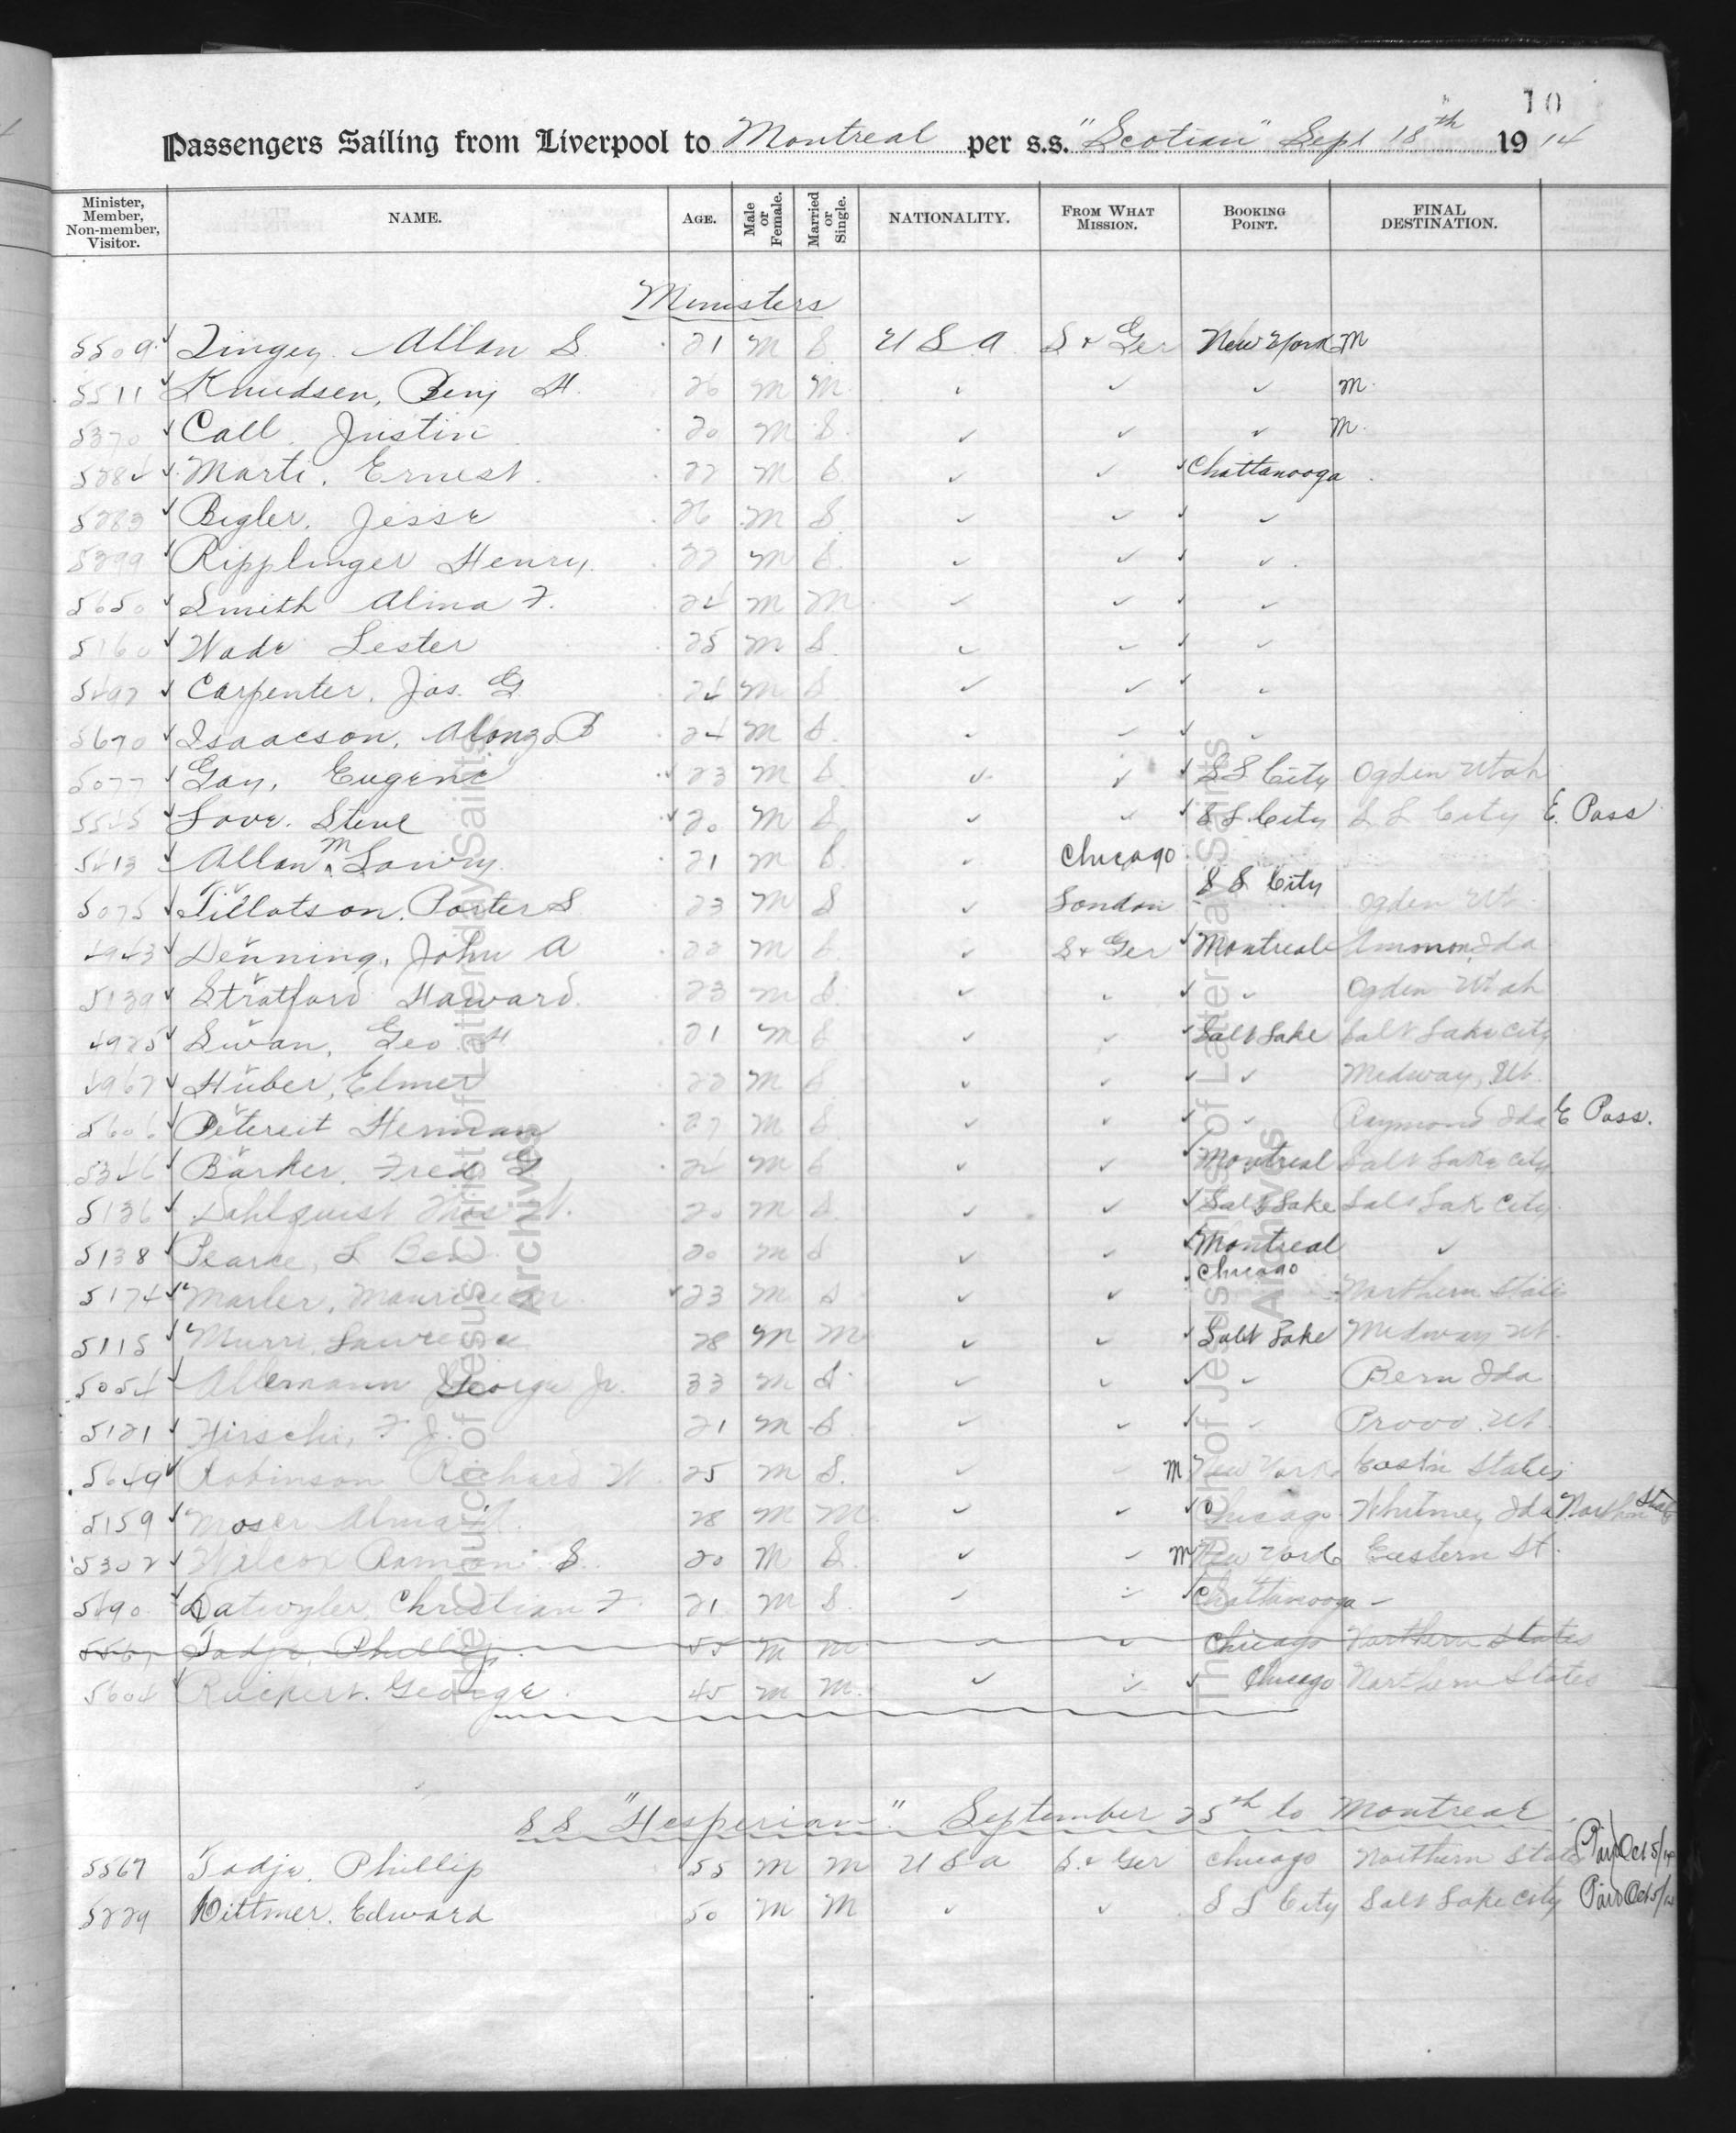 10
Passengers Sailing from Liverpool to Montreal per s.s. "Scotian" Sept 18th 1914
Minister, Member, Non-member, Visitor. NAME. AGE. Male or Female. Married or Single. NATIONALITY. FROM WHAT MISSION. BOOKING POINT. FINAL DESTINATION.
Ministers
5509 Tingey. Allan S. 21 M S. U S A S & Ger New York M
5511 Knudsen, Benj H. 26 M M. ✓ ✓ ✓ M.
5370 Call. Justin 20 M S. ✓ ✓ ✓ M.
5284 Marti, Ernest. 22 M S. ✓ ✓ Chattanooga
5283 Bigler. Jesse 26 M S. ✓ ✓ ✓
5299 Ripplinger Henry. 22 M S. ✓ ✓ ✓
5650 Smith Alma F. 24 M M. ✓ ✓ ✓
5160 Wade Lester 25 M S. ✓ ✓ ✓
5497 Carpenter, Jas. G. 24 M S. ✓ ✓ ✓
5670 Isaacson, Alonzo B 24 M S. ✓ ✓ ✓
5077 Gay, Eugene 23 M S. ✓ ✓ S L City Ogden Utah
5545 Love. Steve 20 M S. ✓ ✓ S L City S L City E. Pass
5413 Allan M Lowry. 21 M S. ✓ Chicago
5075 Tillotson. Porter S 23 M S ✓ London S L City Ogden Ut.
4943 Denning, John A 22 M S. ✓ S & Ger Montreal Ammon, Ida
5139 Stratford Howard. 23 M S. ✓ ✓ ✓ Ogden Utah
4925 Swan, Geo H 21 M S ✓ ✓ Salt Lake Salt Lake City
4967 Huber, Elmer 22 M S ✓ ✓ ✓ Midway, Ut.
5606 Petereit Herman 27 M S. ✓ ✓ ✓ Raymond Ida E Pass.
5346 Barker, Fred G 24 M S ✓ ✓ Montreal Salt Lake City
5136 Dahlquist Thos 20 M S. ✓ ✓ Salt Lake Salt Lak City
5138 Pearce, L Ben 20 M S ✓ ✓ Montreal ✓
5174 Marler, Maurice M 23 M S ✓ ✓ Chicago Northern State
5115 Murri, Lawrence 28 M M ✓ ✓ Salt Lake Midway Ut.
5054 Allemann George Jr. 33 M S. ✓ ✓ ✓ Bern Ida
5121 Hirschi, F J. 21 M S. ✓ ✓ ✓ Provo. Ut.
5649 Robinson Richard W. 25 M S. ✓ ✓ M New York Eastn States
5159 Moser Alma 28 M M ✓ ✓ Chicago Whitney Ida Northn States
5302 Wilcox Ramon S. 20 M S. ✓ ✓ M New York Eastern St.
5490 Datwyler, Christian F. 21 M S. ✓ ✓ Chattanooga -
5567 Tadje, Phillip. 55 M M ✓ ✓ Chicago Northern States
5604 Ruckert. George. 45 M M. ✓ ✓ Chicago Northern States
S S "Hesperian". September 25th to Montreal
5567 Tadje, Phillip 55 M M U S A S. & Ger Chicago Northern States Paid Oct 5/14
5229 Dittmer. Edward 50 M M ✓ ✓ S L City Salt Lake City Paid Oct 5/14
The Church of Jesus Christ of Latter-day Saints
Archives
The Church of Jesus Christ of Latter-day Saints
Archives